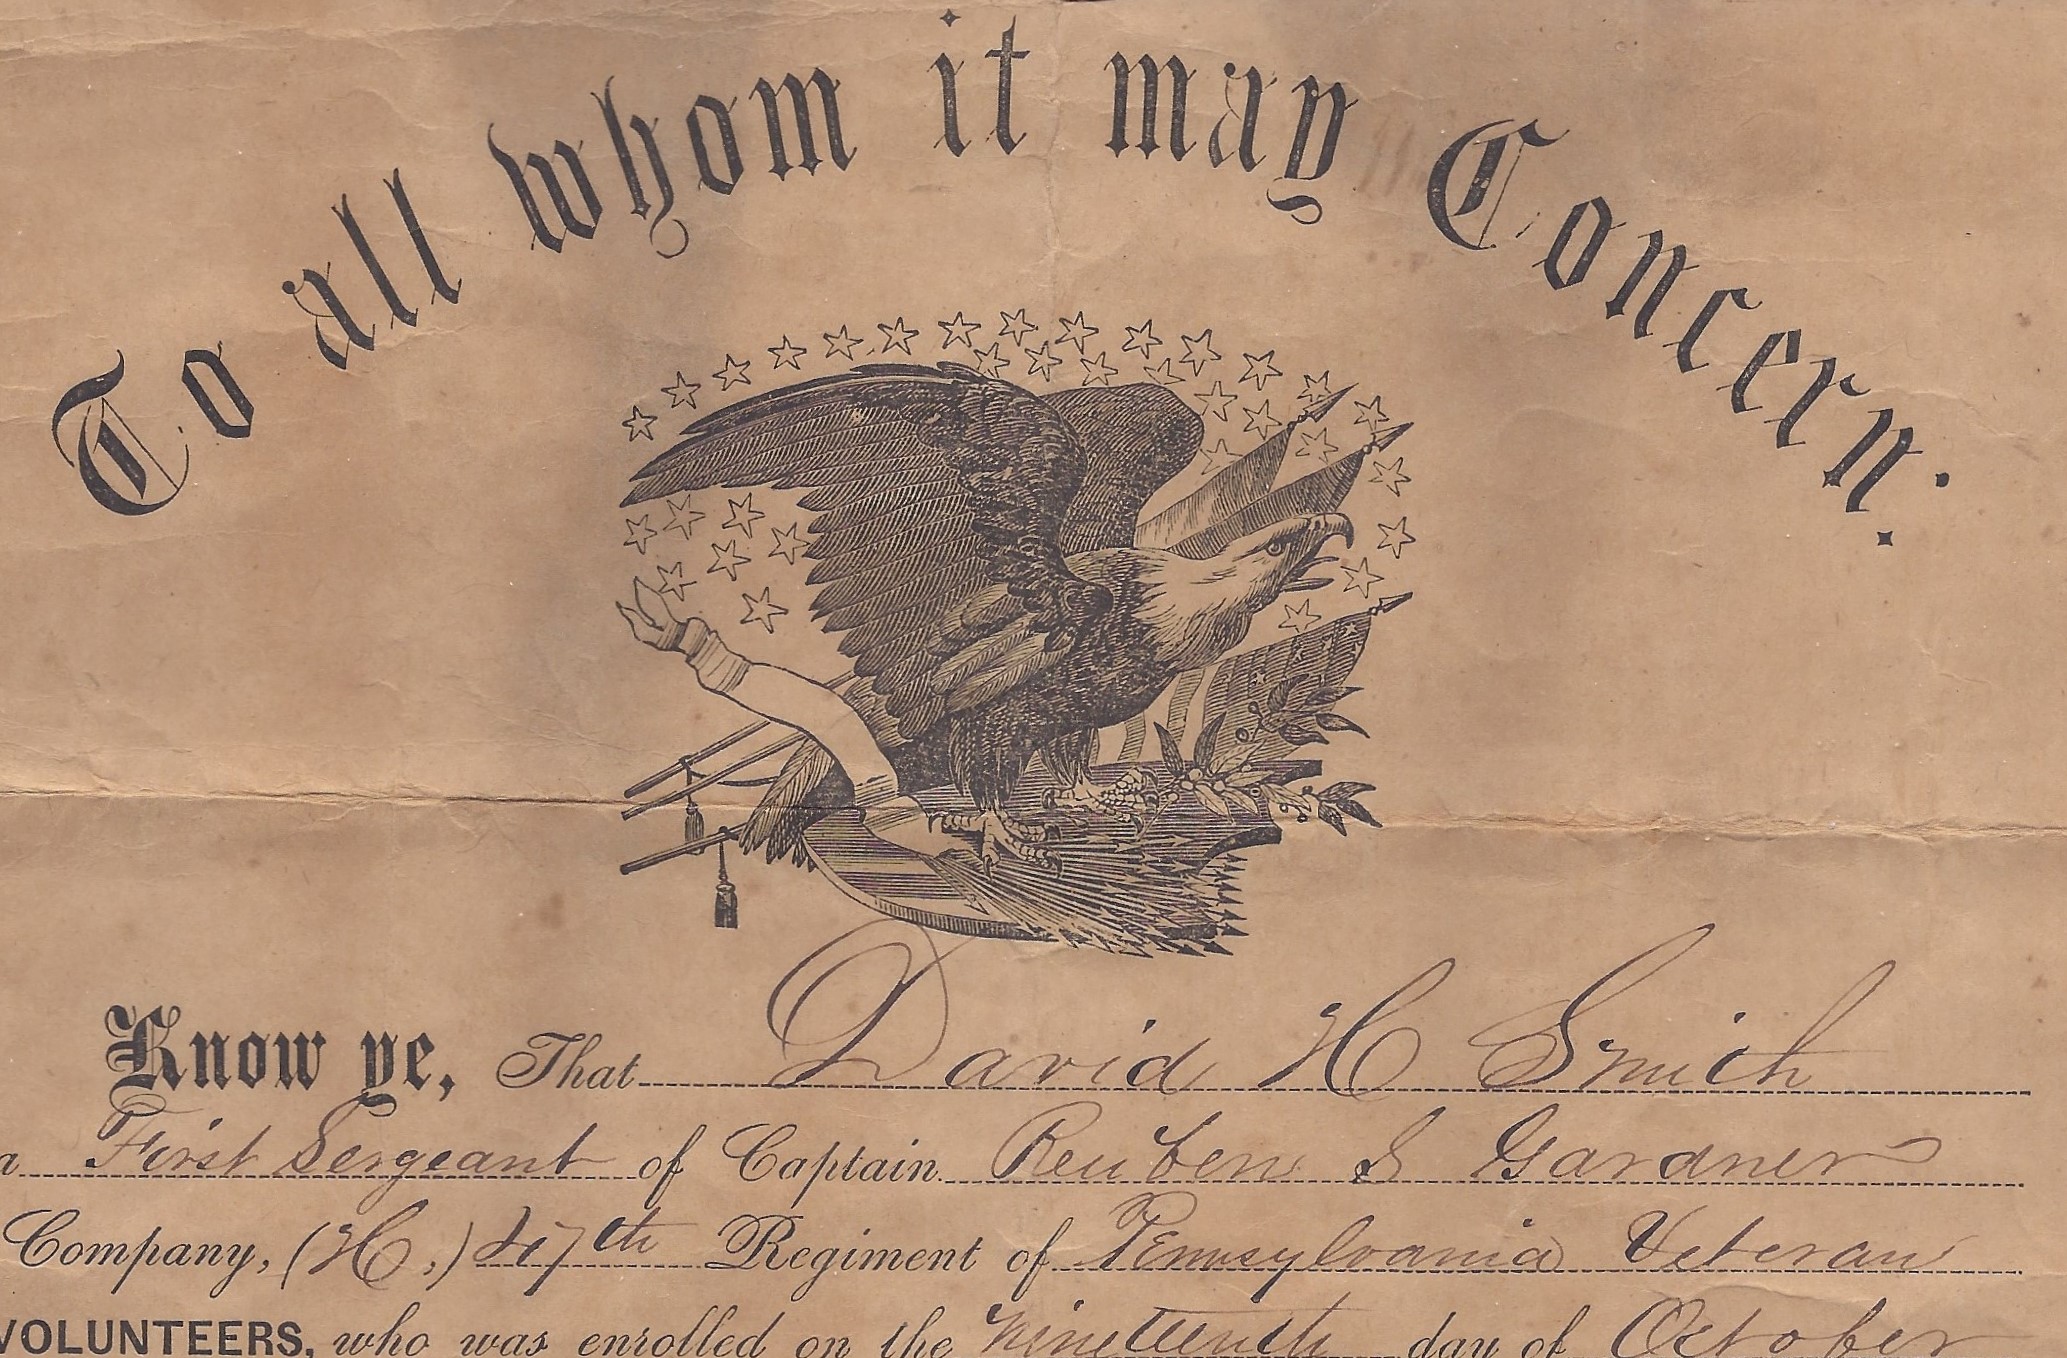 To all whom it may Concern:
Know ye, That David H Smith
a First Sergeant of Captain Reuben S Gardner
Company, (H,) 47th Regiment of Pennsylvania Veteran
VOLUNTEERS, who was enrolled on the nineteenth day of October